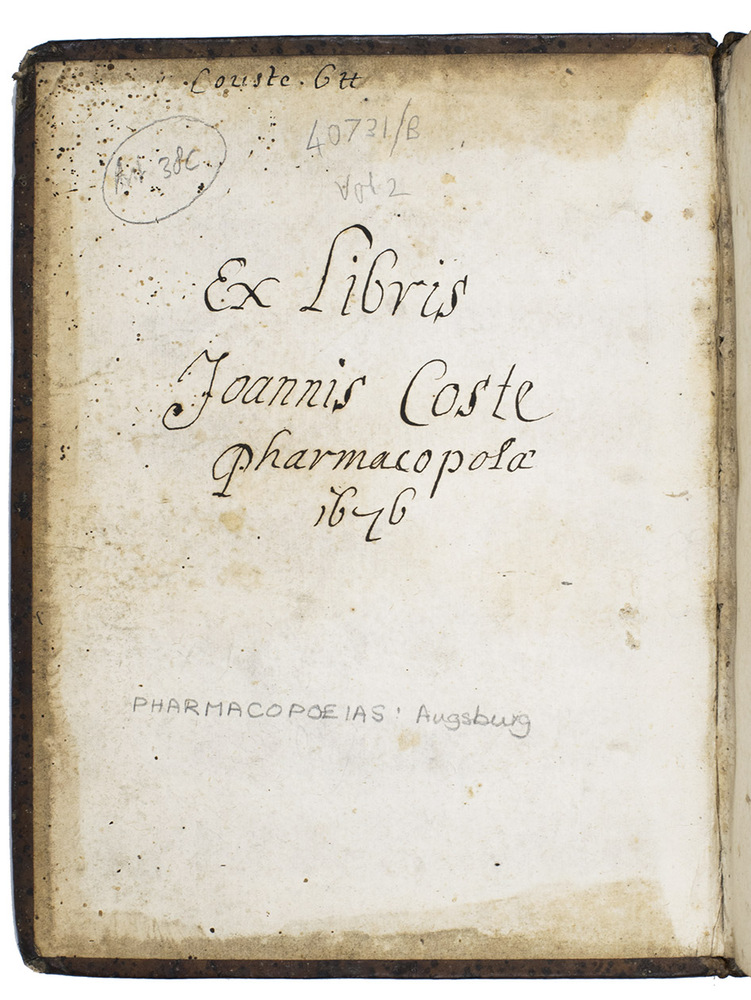 Couste. 6tt
40731/B
38C
Vol 2
Ex Libris
Joannis Coste
Pharmacopolæ
1676
PHARMACOPOEIAS: Augsburg